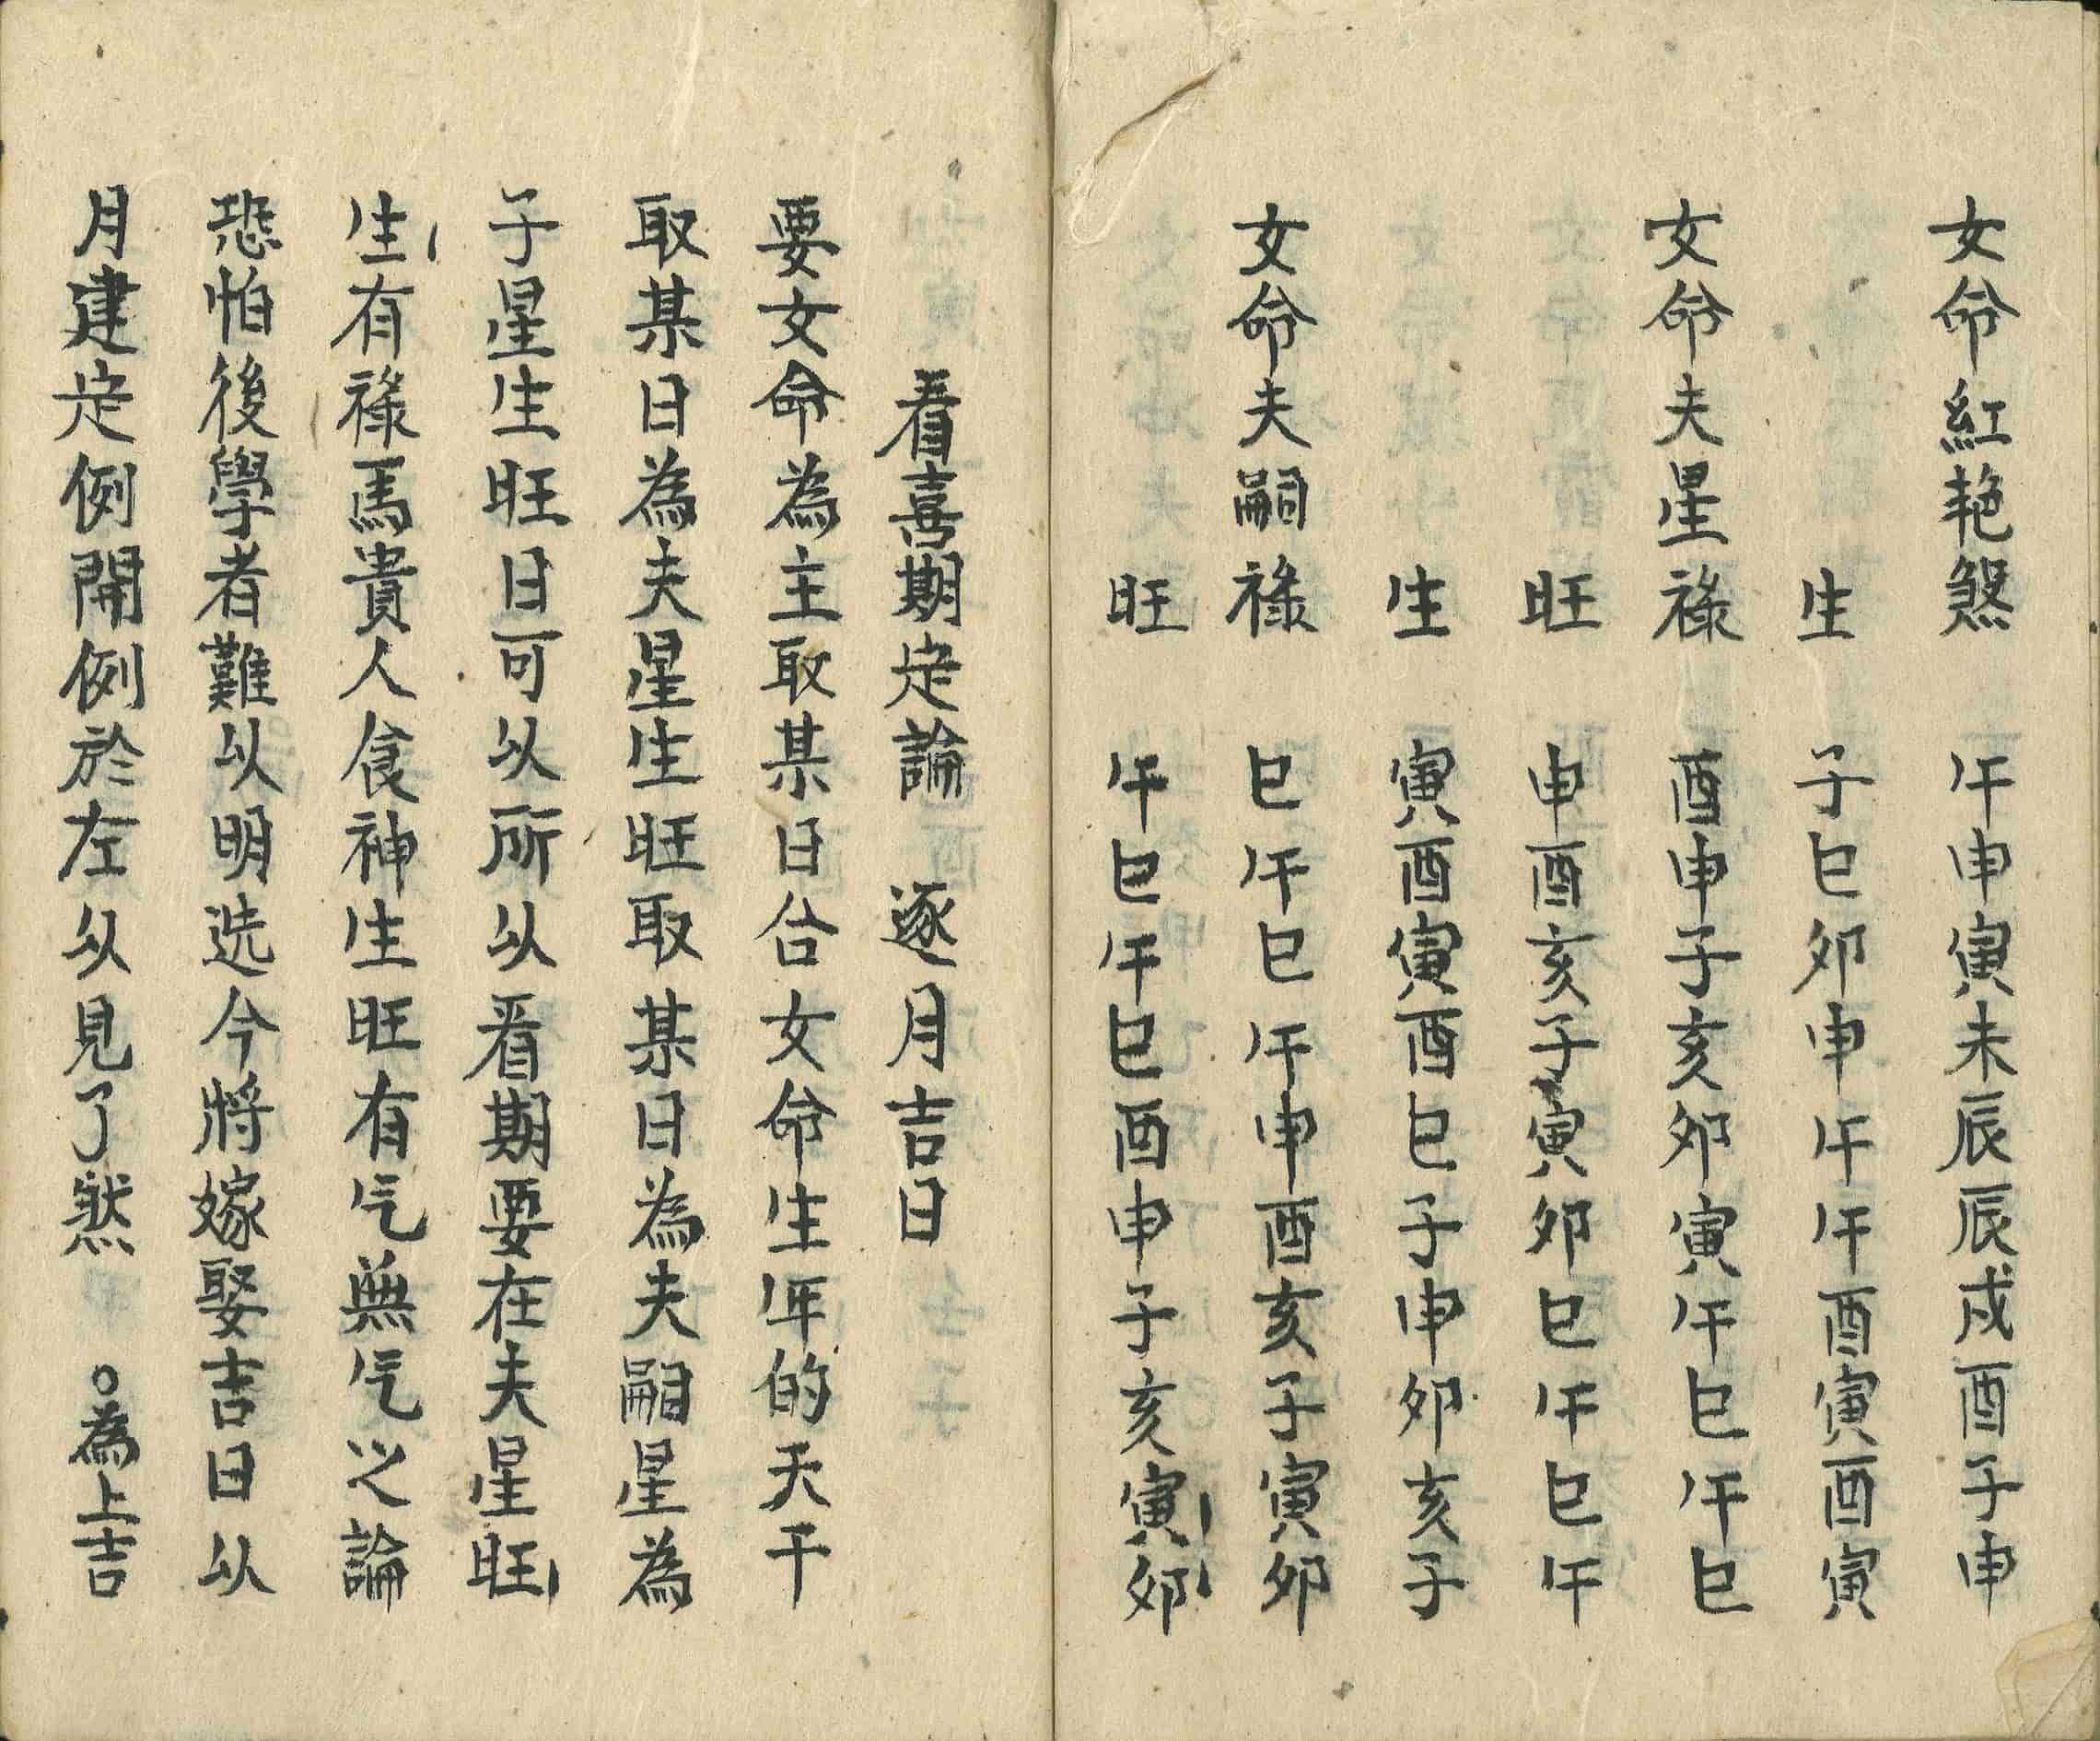 女命紅艳煞　午申寅未辰辰戌酉子申
生　子巳卯申午午酉寅酉寅
女命夫星祿　酉申子亥卯寅午巳午巳
旺　申酉亥子寅卯巳午巳午
生　寅酉寅酉巳子申卯亥子
女命夫嗣祿　巳午巳午申酉亥子寅卯
旺　午巳午巳酉申子亥寅卯
看喜期定論　逐月吉日
要女命為主取某日合女命生年的天干
取某日為夫星生旺取某日為夫嗣星為
子星生旺日可以所以看期要在夫星旺
生有祿馬貴人食神生旺有气無气之論
恐怕後學者難以明选今將嫁娶吉日以
月建定例開例於左以見了然　○為上吉